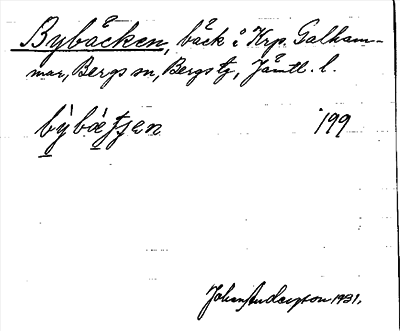 Bybäcken, bäck i Krp. Galham-
mar, Bergs sn, Bergs tg, Jämtl. l.
bỳbæ̀ʈʂen 199
Johan Anderson 1931.